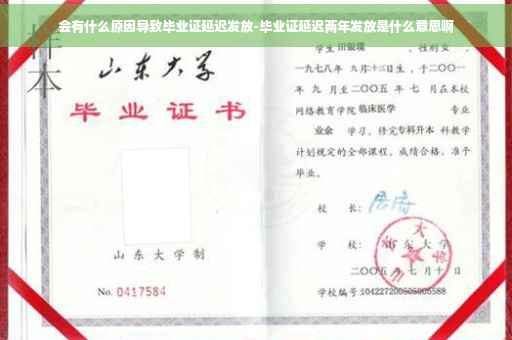 会有什么原因导致毕业证延迟发放-毕业证延迟两年发放是什么意思啊
样本
山东大学
毕业证书
山东大学制
No. 0417584
学生 田银璞 ，性别女，
一九七八年 九月十三日生，于二〇〇一
年 九 月至二〇〇五 年 七 月在本校
网络教育学院 临床医学 专业
业余 学习，修完专科升本 科教学
计划规定的全部课程，成绩合格，准予
毕业。
校 长：
学 校： 山东大学
二〇〇五 年 七 月 十 日
学校编号：